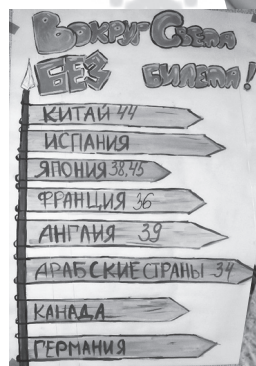 ВОКРУГ СВЕТА
БЕЗ БИЛЕТА!
КИТАЙ 44
ИСПАНИЯ
ЯПОНИЯ 38,45
ФРАНЦИЯ 36
АНГЛИЯ 39
АРАБСКИЕ СТРАНЫ 34
КАНАДА
ГЕРМАНИЯ